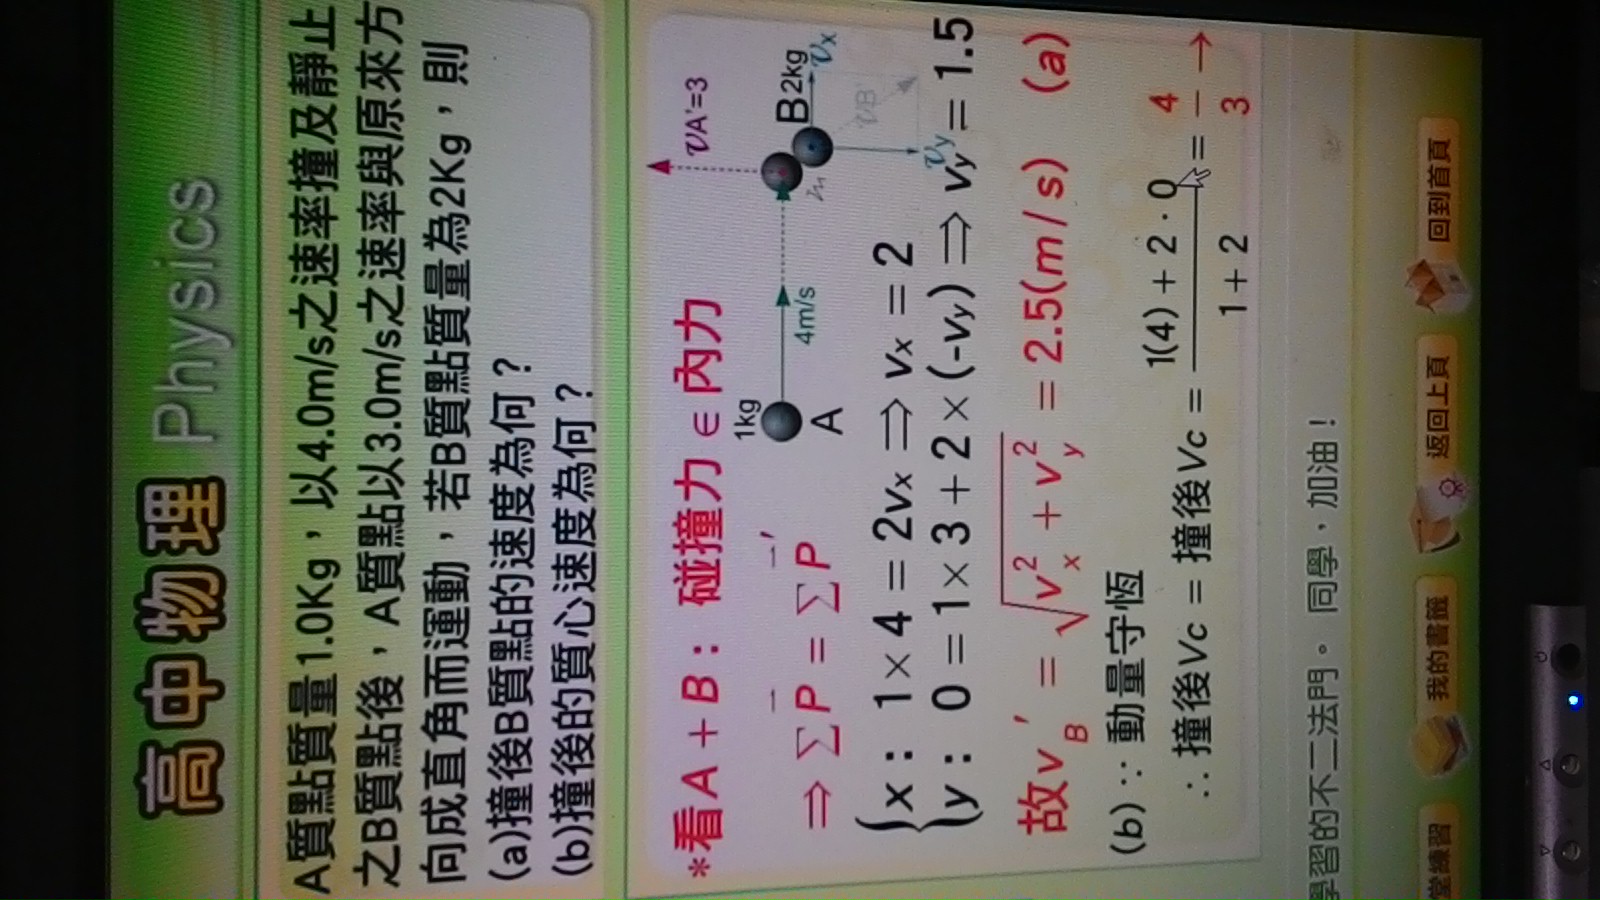 高中物理 Physics
A質點質量1.0Kg，以4.0m/s之速率撞及靜止
之B質點後，A質點以3.0m/s之速率與原來方
向成直角而運動，若B質點質量為2Kg，則
(a)撞後B質點的速度為何？
(b)撞後的質心速度為何？
*看A+B： 碰撞力 ∈ 內力
⇒ ∑P = ∑P′
1kg
A
4m/s
VA'=3
B 2kg
m
Vx
VB'
Vy
x： 1×4 = 2vx ⇒ vx = 2
y： 0 = 1×3+2×(-vy) ⇒ vy = 1.5
故vB′ = √vx² + vy² = 2.5(m/s) (a)
(b) ∵ 動量守恆
∴ 撞後Vc = 撞後Vc = 1(4)+2·0 / 1+2 = 4/3 →
學習的不二法門。 同學，加油！
堂練習
我的書籤
返回上頁
回到首頁